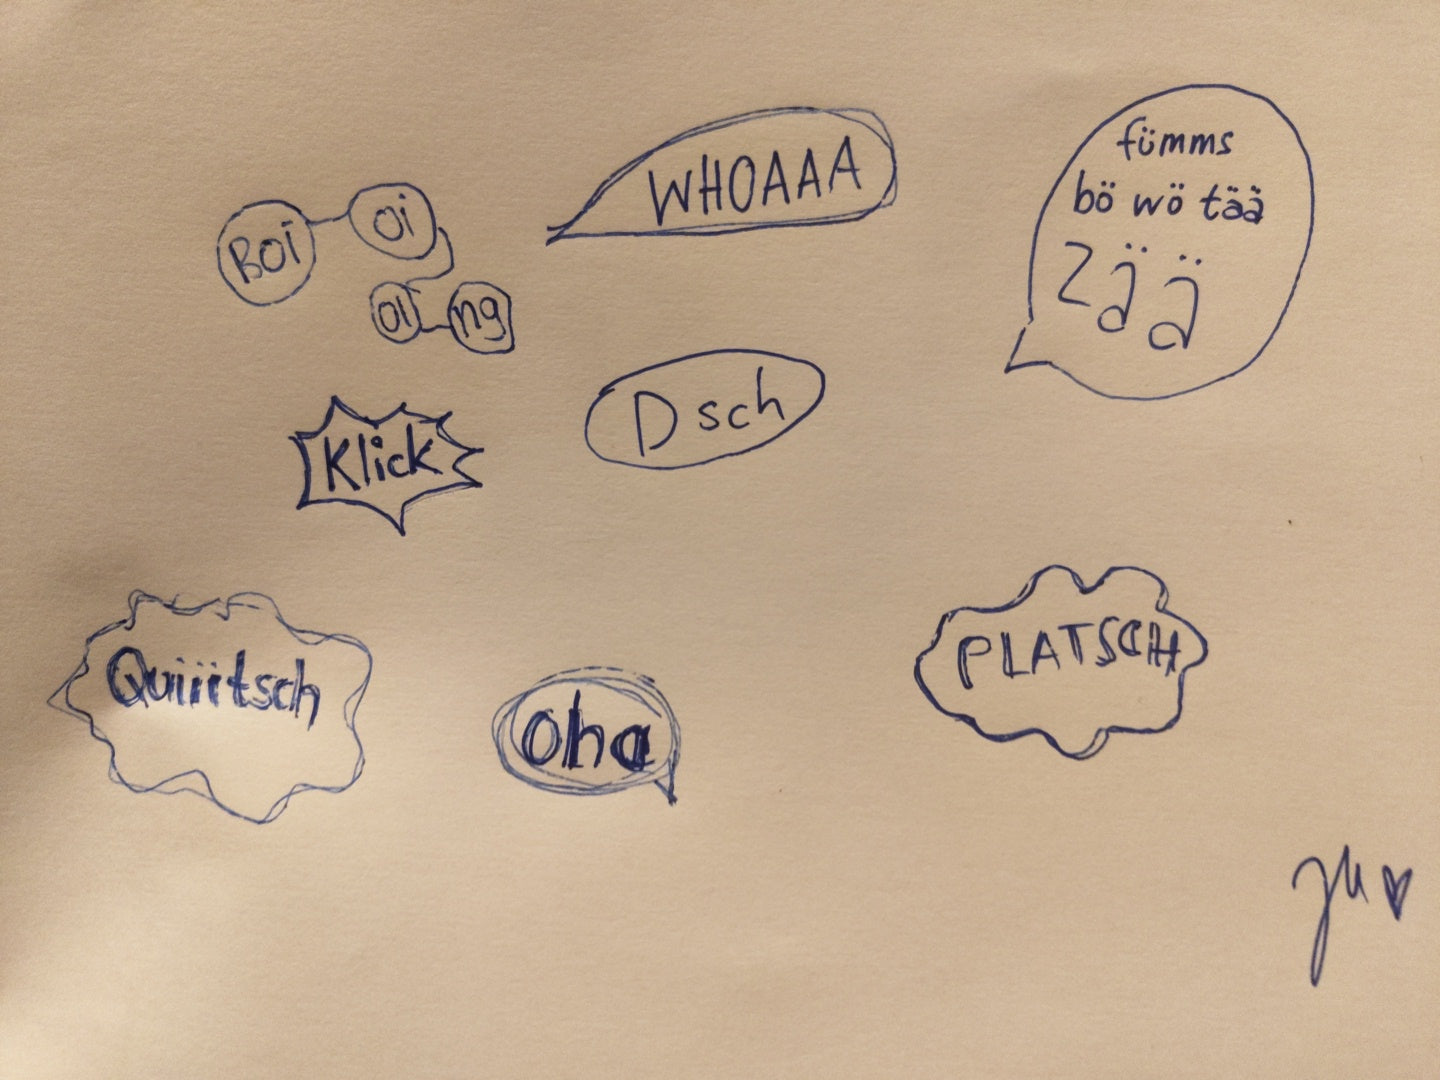 WHOAAA
fümms
bö wö tää
Zää
Boi oi
oi ng
Dsch
Klick
PLATSCH
Quiiitsch
oha